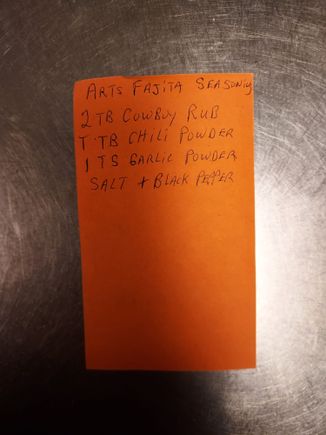 ARTS FAJITA SEASONING
2 TB COWBOY RUB
1 TB CHILI POWDER
1 TS GARLIC POWDER
SALT + BLACK PEPPER